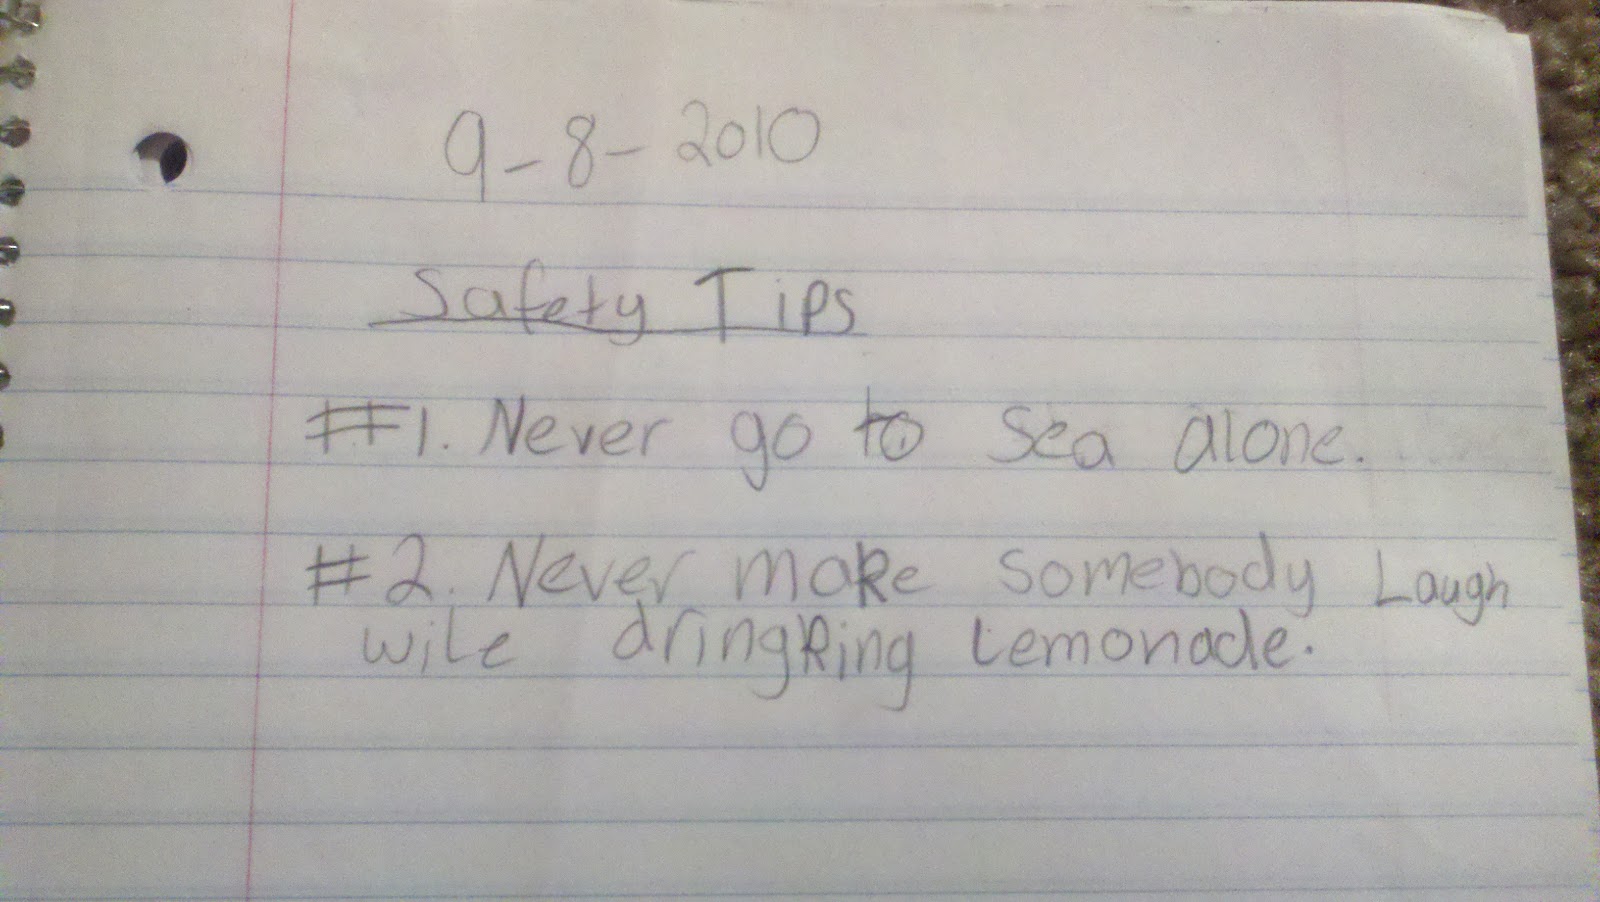 9-8-2010
Safety Tips
#1. Never go to sea alone.
#2. Never make somebody Laugh
wile dringking Lemonade.